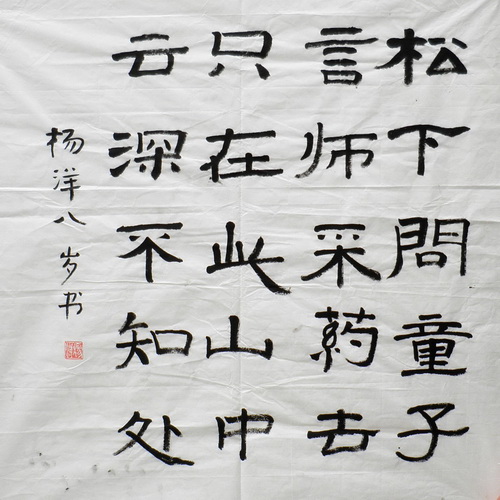 松下問童子
言师采药去
只在此山中
云深不知处
杨洋八岁书